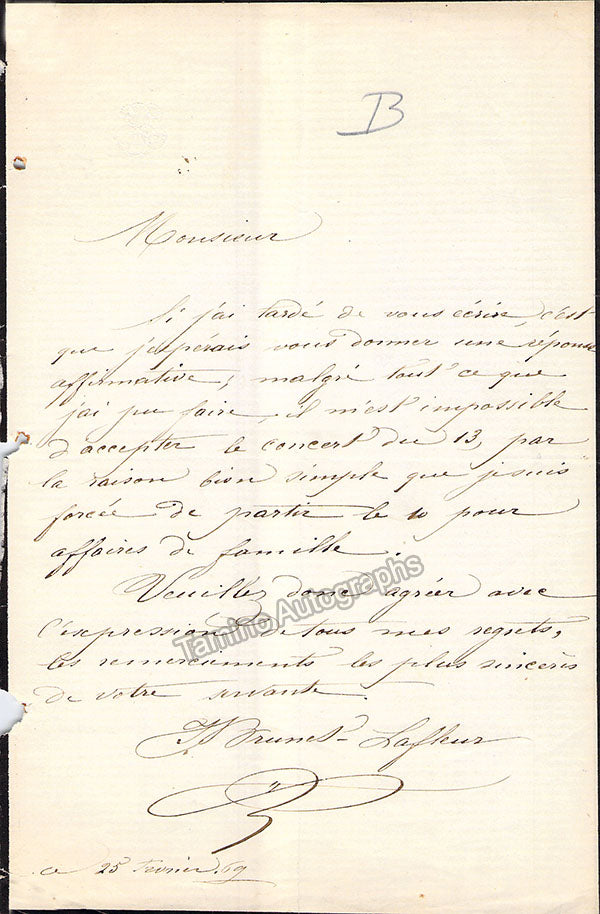 B
Monsieur
Si j'ai tardé de vous écrire, c'est
que j'espérais vous donner une réponse
affirmative; malgré tout ce que
j'ai pu faire, il m'est impossible
d'accepter le concert du 13, par
la raison bien simple que je suis
forcée de partir le 10 pour
affaires de famille.
Veuillez donc agréer avec
l'expression de tous mes regrets,
les remerciements les plus sincères
de votre servante.
Brunet-Lafleur
ce 25 février 69
Tamino Autographs